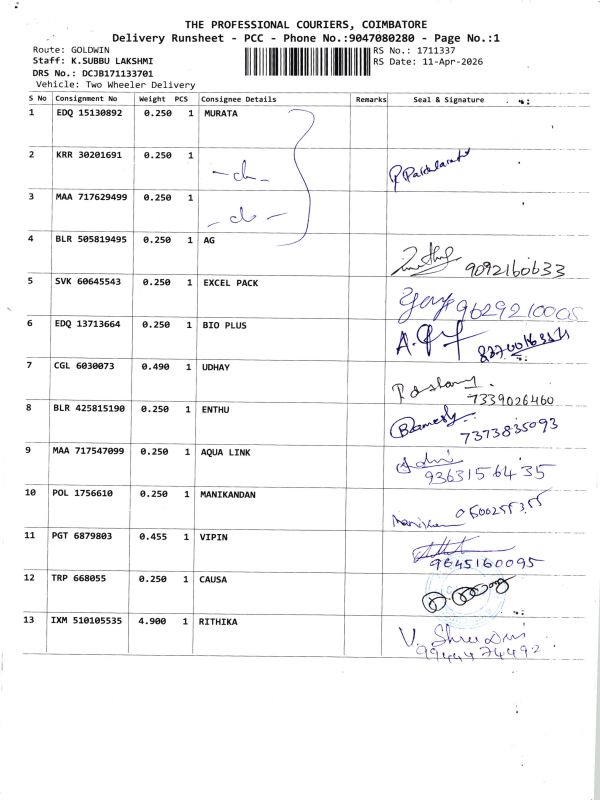 THE PROFESSIONAL COURIERS, COIMBATORE
Delivery Runsheet - PCC - Phone No.:9047080280 - Page No.:1
Route: GOLDWIN RS No.: 1711337
Staff: K.SUBBU LAKSHMI RS Date: 11-Apr-2026
DRS No.: DCJB171133701
Vehicle: Two Wheeler Delivery
S No Consignment No Weight PCS Consignee Details Remarks Seal & Signature
1 EDQ 15130892 0.250 1 MURATA
2 KRR 30201691 0.250 1 -do-
3 MAA 717629499 0.250 1 -do-
4 BLR 505819495 0.250 1 AG 9092160633
5 SVK 60645543 0.250 1 EXCEL PACK 9629210005
6 EDQ 13713664 0.250 1 BIO PLUS
7 CGL 6030073 0.490 1 UDHAY 7339026460
8 BLR 425815190 0.250 1 ENTHU Ramesh 7373835093
9 MAA 717547099 0.250 1 AQUA LINK 9363156435
10 POL 1756610 0.250 1 MANIKANDAN
11 PGT 6879803 0.455 1 VIPIN 9645160095
12 TRP 668055 0.250 1 CAUSA
13 IXM 510105535 4.900 1 RITHIKA V. Shree Dui 9944474492